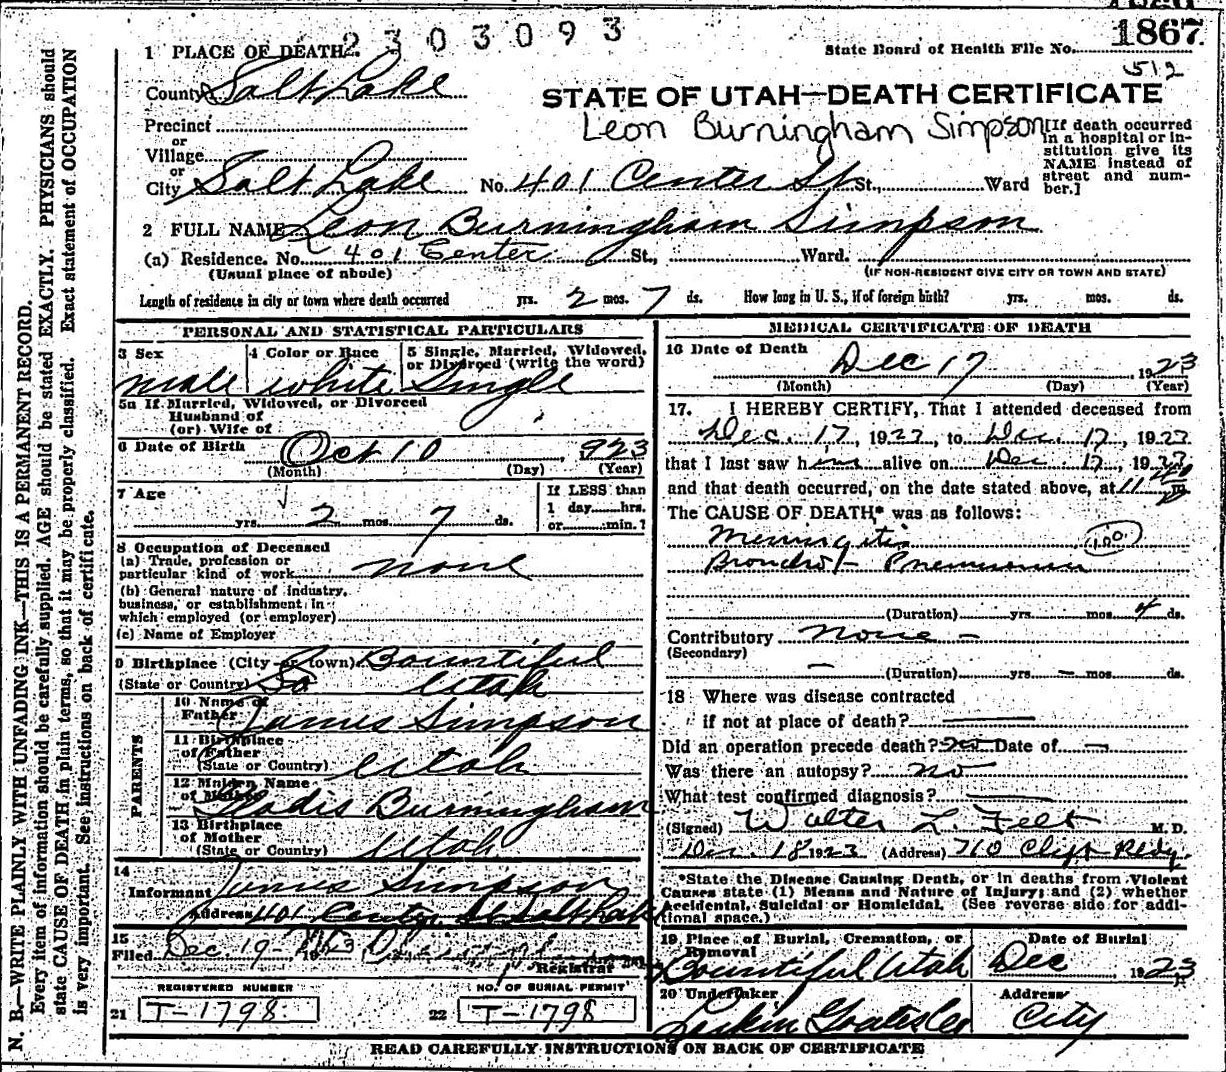 2303093
1867
State Board of Health File No.
512
1 PLACE OF DEATH
County Salt Lake
STATE OF UTAH—DEATH CERTIFICATE
Leon Burningham Simpson
Precinct
or
Village
or
City Salt Lake No. 401 Center St St., Ward
[If death occurred
in a hospital or in-
stitution give its
NAME instead of
street and num-
ber.]
2 FULL NAME Leon Burningham Simpson
(a) Residence. No. 401 Center St., Ward.
(Usual place of abode)
(IF NON-RESIDENT GIVE CITY OR TOWN AND STATE)
Length of residence in city or town where death occurred yrs. 2 mos. 7 ds. How long in U. S., if of foreign birth? yrs. mos. ds.
PERSONAL AND STATISTICAL PARTICULARS
3 Sex
male
4 Color or Race
white
5 Single, Married, Widowed,
or Divorced (write the word)
Single
5a If Married, Widowed, or Divorced
Husband of
(or) Wife of
6 Date of Birth Oct 10, 923
(Month) (Day) (Year)
7 Age
yrs. 2 mos. 7 ds.
If LESS than
1 day hrs.
or min.?
8 Occupation of Deceased
(a) Trade, profession or
particular kind of work none
(b) General nature of industry,
business, or establishment in
which employed (or employer)
(c) Name of Employer
9 Birthplace (City or town) Bountiful
(State or Country) Utah
PARENTS
10 Name of
Father James Simpson
11 Birthplace
of Father
(State or Country) Utah
12 Maiden Name
of Mother Burningham
13 Birthplace
of Mother
(State or Country) Utah
14
Informant James Simpson
Address 401 Center St Salt Lake
15
Filed Dec. 19- 1923
Registrar
REGISTERED NUMBER
21 T-1798
NO. OF BURIAL PERMIT
22 T-1798
MEDICAL CERTIFICATE OF DEATH
16 Date of Death Dec 17 1923
(Month) (Day) (Year)
17. I HEREBY CERTIFY, That I attended deceased from
Dec. 17, 1923, to Dec. 17, 1923
that I last saw him alive on Dec. 17, 1923
and that death occurred, on the date stated above, at 11 m
The CAUSE OF DEATH* was as follows:
Meningitis
100
Broncho- Pneumonia
(Duration) yrs. mos. 4 ds.
Contributory None -
(Secondary)
— (Duration) yrs. — mos. ds.
18 Where was disease contracted
if not at place of death?
Did an operation precede death? no Date of —
Was there an autopsy? no
What test confirmed diagnosis?
(Signed) Walter L. Felt M. D.
Dec. 18 1923 (Address) 710 Clift Bldg.
*State the Disease Causing Death, or in deaths from Violent
Causes state (1) Means and Nature of Injury; and (2) whether
Accidental, Suicidal or Homicidal. (See reverse side for addi-
tional space.)
19 Place of Burial, Cremation, or
Removal
Bountiful Utah
Date of Burial
Dec 1923
20 Undertaker
Address
City
READ CAREFULLY INSTRUCTIONS ON BACK OF CERTIFICATE
N. B.—WRITE PLAINLY WITH UNFADING INK—THIS IS A PERMANENT RECORD.
Every item of information should be carefully supplied. AGE should be stated EXACTLY. PHYSICIANS should
state CAUSE OF DEATH in plain terms, so that it may be properly classified. Exact statement of OCCUPATION
is very important. See instructions on back of certificate.